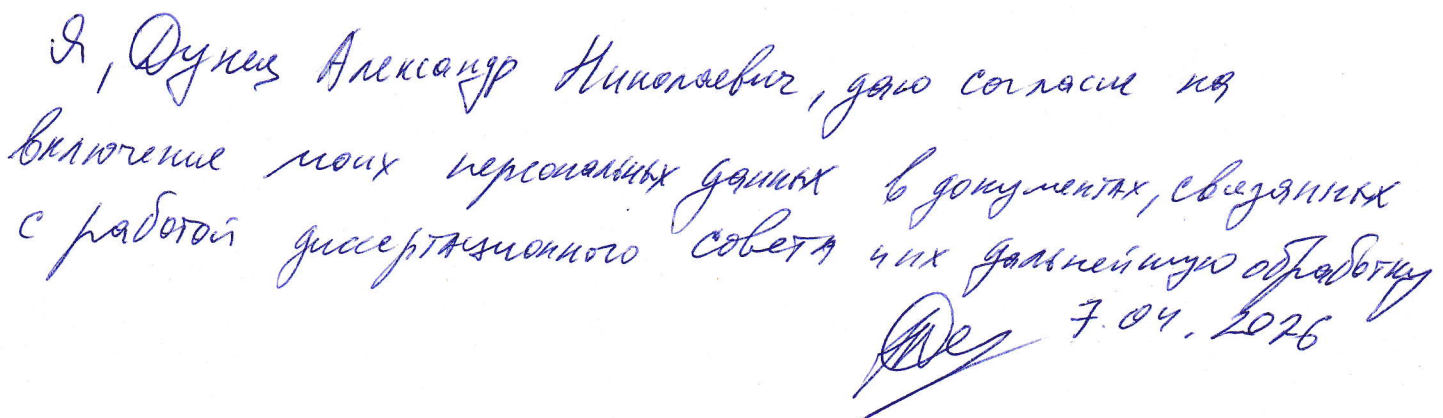 Я, Дунец Александр Николаевич, даю согласие на
включение моих персональных данных в документах, связанных
с работой диссертационного совета и их дальнейшую обработку
7.04.2026